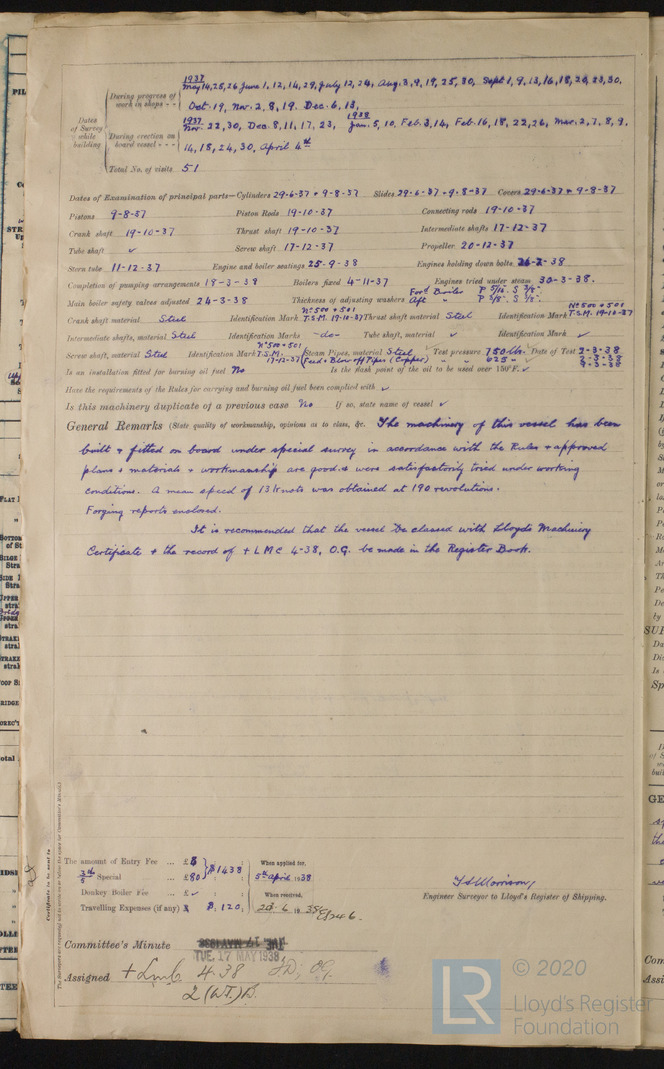 1937
May 14, 25, 26 June 1, 12, 14, 29, July 12, 24, Aug. 3, 9, 19, 25, 30, Sept 1, 9, 13, 16, 18, 23, 30,
During progress of work in shops - -
Oct. 19, Nov. 2, 8, 19. Dec. 6, 13,
Dates of Survey while building
1937 1938
During erection on board vessel - - -
Nov. 22, 30, Dec. 8, 11, 17, 23, Jan. 5, 10, Feb. 3, 14, Feb. 16, 18, 22, 26, Mar. 2, 7, 8, 9,
14, 18, 24, 30, April 4th
Total No. of visits 51
Dates of Examination of principal parts—Cylinders 29-6-37 + 9-8-37 Slides 29-6-37 + 9-8-37 Covers 29-6-37 + 9-8-37
Pistons 9-8-37 Piston Rods 19-10-37 Connecting rods 19-10-37
Crank shaft 19-10-37 Thrust shaft 19-10-37 Intermediate shafts 17-12-37
Tube shaft ✓ Screw shaft 17-12-37 Propeller 20-12-37
Stern tube 11-12-37 Engine and boiler seatings 25-9-38 Engines holding down bolts 26-2-38
Completion of pumping arrangements 18-3-39 Boilers fixed 4-11-37 Engines tried under steam 30-3-38.
Main boiler safety valves adjusted 24-3-38 Thickness of adjusting washers For'd Boiler P 5/16". S 3/8".
Aft " P 3/8". S 1/2".
Crank shaft material Steel Identification Mark Nº 500 + 501 T.S.M. 19-10-37 Thrust shaft material Steel Identification Mark Nº 500 + 501 T.S.M. 19-10-37
Intermediate shafts, material Steel Identification Marks -do- Tube shaft, material ✓ Identification Mark ✓
Screw shaft, material Steel Identification Mark Nº 500 + 501 T.S.M. 17-12-37 Steam Pipes, material Steel Test pressure 750 lbs. Date of Test 2-3-38
Feed + Blow off Pipes (Copper) " " 625 " 7-3-38
9-3-38
Is an installation fitted for burning oil fuel No Is the flash point of the oil to be used over 150°F. ✓
Have the requirements of the Rules for carrying and burning oil fuel been complied with ✓
Is this machinery duplicate of a previous case No If so, state name of vessel ✓
General Remarks (State quality of workmanship, opinions as to class, &c. The machinery of this vessel has been
built + fitted on board under special survey in accordance with the Rules + approved
plans + materials + workmanship are good. + were satisfactorily tried under working
conditions. A mean speed of 13 knots was obtained at 190 revolutions.
Forging reports enclosed.
It is recommended that the vessel be classed with Lloyds Machinery
Certificate + the record of + LMC 4-38, O.G. be made in the Register Book.
Certificate to be sent to
The amount of Entry Fee ... £ When applied for,
Special ... £80 $1438 5th April 1938
Donkey Boiler Fee ... £ ✓ When received,
Travelling Expenses (if any) £ $ 120. 20-6 1938
T. S. Morrison,
Engineer Surveyor to Lloyd's Register of Shipping.
Committee's Minute TUE. 17 MAY 1938
Assigned + Lmc 4.38
2 (W.T.) B.
LR
© 2020
Lloyd's Register
Foundation